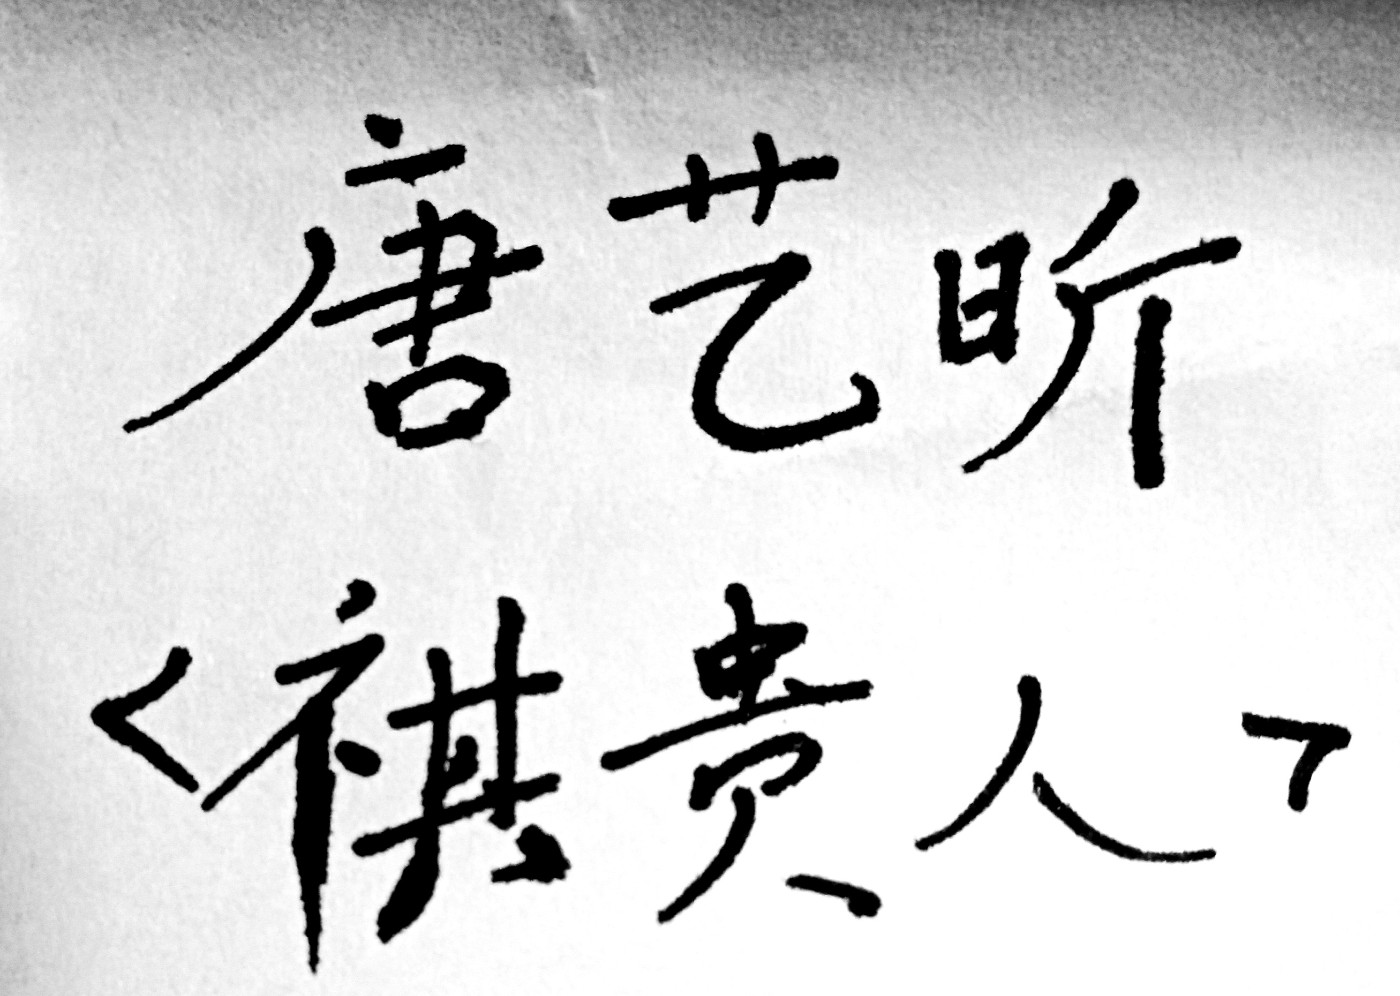 唐艺昕
<祺贵人>